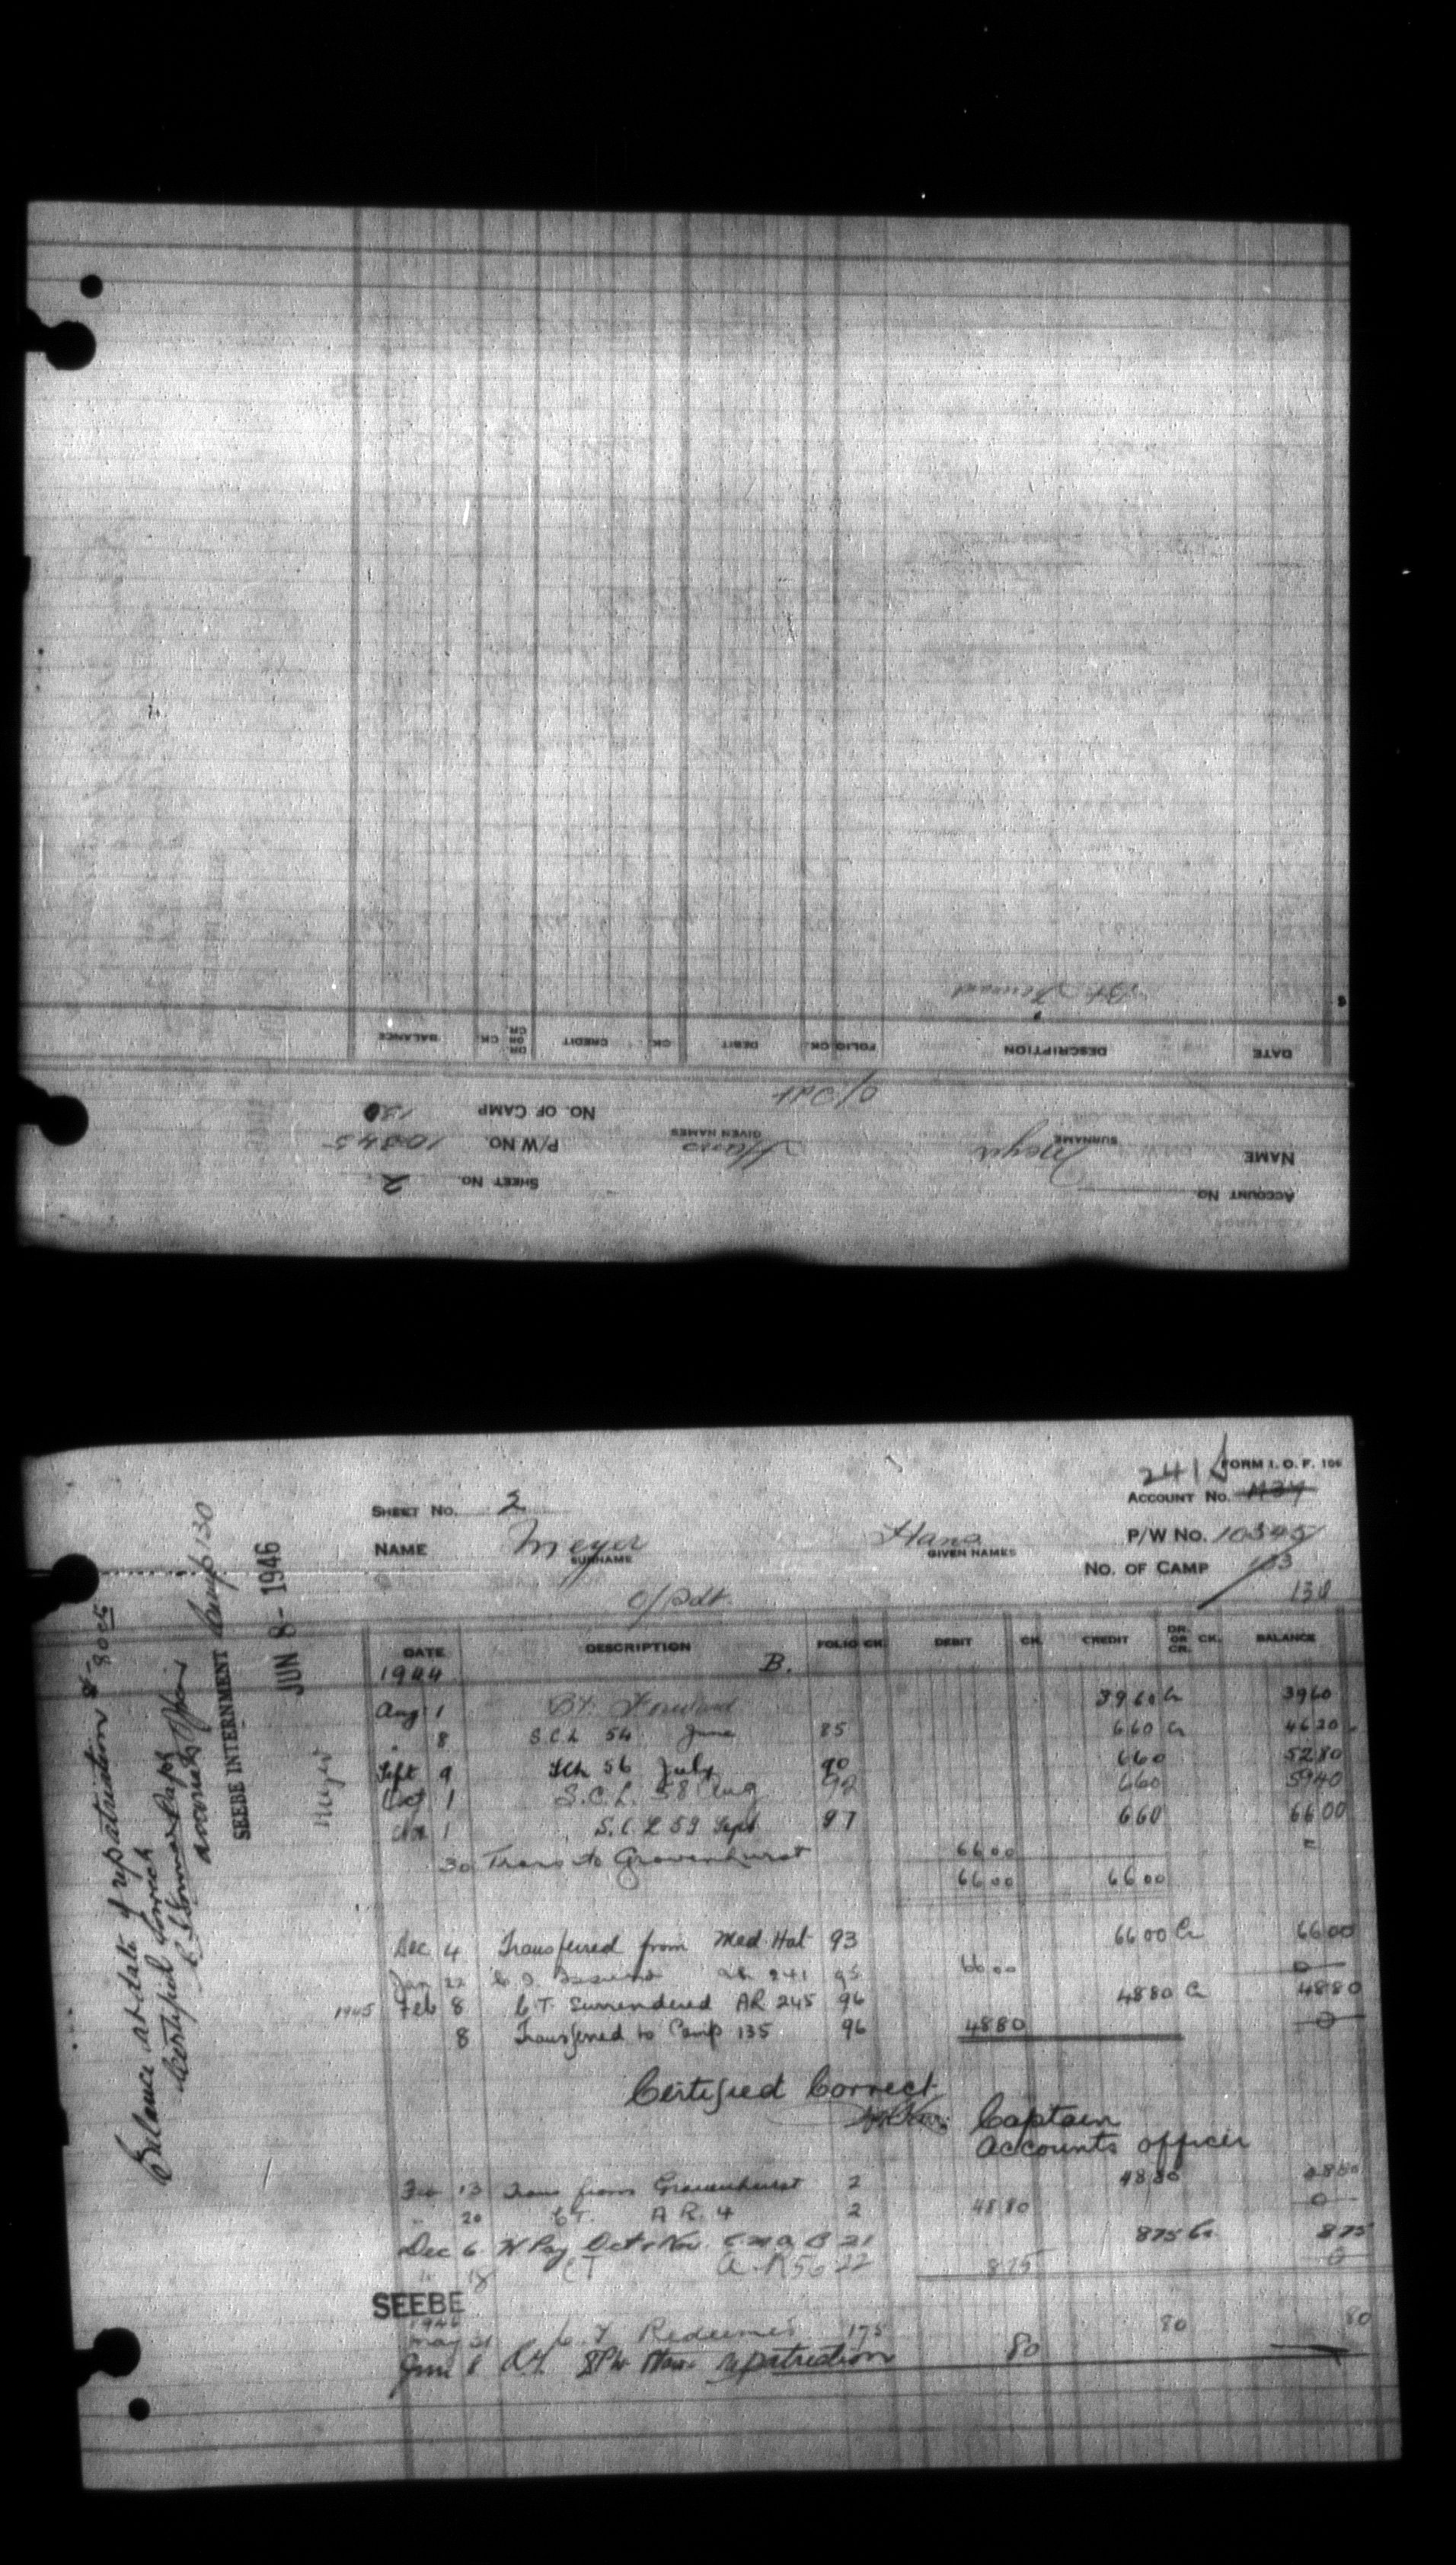 ACCOUNT No.
SHEET No. 2
NAME Meyer Hans P/W No. 10345
SURNAME GIVEN NAMES
NO. OF CAMP 130
O/Pdt
DATE DESCRIPTION FOLIO CK. DEBIT CK. CREDIT DR. OR CR. CK. BALANCE
Bt. Forward
241 FORM I. O. F. 106
SHEET No. 2 ACCOUNT No.
NAME Meyer Hans P/W No. 10345
SURNAME GIVEN NAMES
NO. OF CAMP 133
O/Pdt. 130
DATE DESCRIPTION FOLIO CK. DEBIT CK. CREDIT DR. OR CR. CK. BALANCE
1944 B.
Aug 1 Bt. Forward 3960 Cr 3960
" 8 S.C.L 54 June 85 660 Cr 4620
Sept 9 56 July 90 660 5280
Oct 1 S.C.L. 58 Aug 92 660 5940
1 S.C.L 59 Sept 97 660 6600
30 Trans to Gravenhurst 6600
6600 6600
Dec 4 Transferred from Med. Hat 93 6600 Cr 6600
Jan 22 C.T. Issued AR 241 95 6600 0
1945 Feb 8 C.T. Surrendered AR 245 96 4880 Cr 4880
8 Transferred to Camp 135 96 4880 0
Certified Correct
Captain
Accounts Officer
Feb 13 Trans from Gravenhurst 2 4880 4880
" 20 C.T. A R. 4 2 4880 0
Dec 6 W Pay Oct & Nov. 21 875 Cr 875
" 18 CT A.R 56 22 875 0
SEEBE
1946
May 31 C.T Redeemed 175 80 80
Jun 8 repatriation 80
Balance at date of repatriation 80
Certified Correct
Accounts Officer
SEEBE INTERNMENT Camp 130
JUN 8 - 1946
Meyer